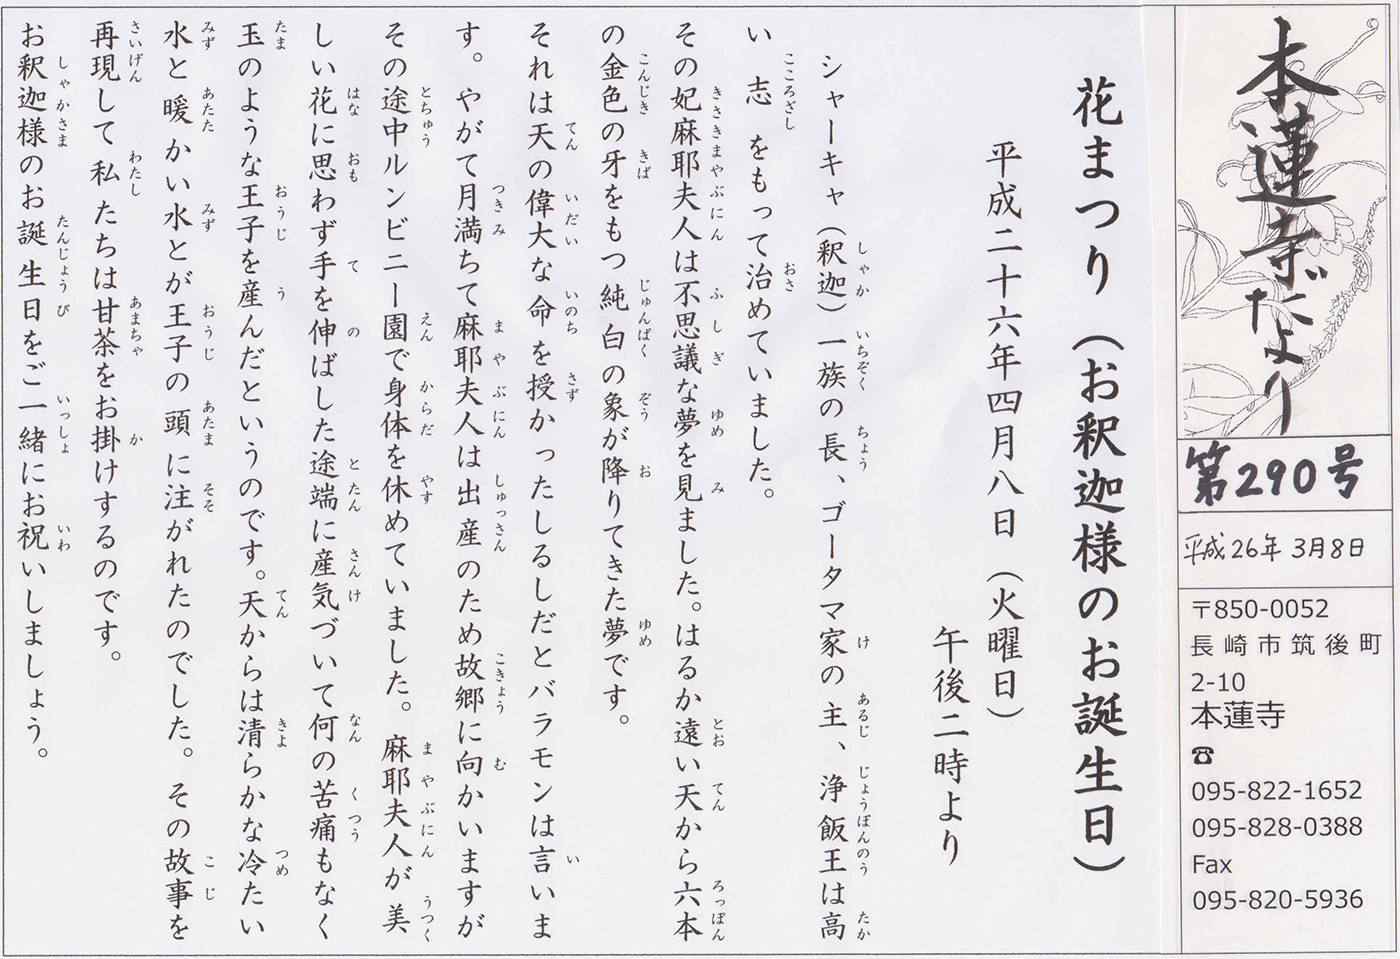 本蓮寺だより
第290号
平成26年 3月8日
〒850-0052
長崎市筑後町
2-10
本蓮寺
☎
095-822-1652
095-828-0388
Fax
095-820-5936
花まつり（お釈迦様のお誕生日）
平成二十六年四月八日（火曜日）
午後二時より
シャーキャ（釈迦）一族の長、ゴータマ家の主、浄飯王は高
い志をもって治めていました。
その妃麻耶夫人は不思議な夢を見ました。はるか遠い天から六本
の金色の牙をもつ純白の象が降りてきた夢です。
それは天の偉大な命を授かったしるしだとバラモンは言いま
す。やがて月満ちて麻耶夫人は出産のため故郷に向かいますが
その途中ルンビニー園で身体を休めていました。麻耶夫人が美
しい花に思わず手を伸ばした途端に産気づいて何の苦痛もなく
玉のような王子を産んだというのです。天からは清らかな冷たい
水と暖かい水とが王子の頭に注がれたのでした。その故事を
再現して私たちは甘茶をお掛けするのです。
お釈迦様のお誕生日をご一緒にお祝いしましょう。